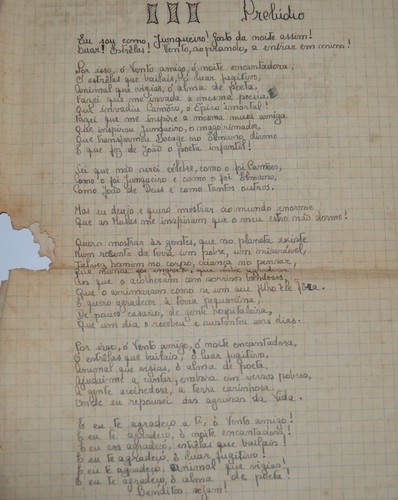 III Prelúdio
Eu sou como, Junqueiro! Gosto da noite assim!
Luar! Estrêlas! O Vento, aspirando, a entrar em mim!
Por isso, ó Vento amigo, ó noite encantadora,
Ó estrêlas que bailais, ó luar fugitivo,
Animal que vigias, ó alma de poeta,
Fazei que me invada a mesma poesia
Que invadiu Camões, o Épico imortal!
Fazei que me inspire a mesma musa amiga
Que inspirou Junqueiro, o mago rimador,
Que transformou Bocage no Elmano divino
E que fez de João o poeta infantil!
Sei que não serei célebre, como o foi Camões,
Como o foi Junqueiro e como o foi Elmano,
Como João de Deus e como tantos outros.
Mas eu desejo e quero mostrar ao mundo enorme
Que as Musas me inspiram que o meu estro não dorme!
Quero mostrar às gentes, que no planeta existe
Num recanto da terra um pobre, um miserável,
homem no corpo, criança no pensar,
Que nunca foi ingrato, que
Os que o acolheram com sorrisos bondosos,
Que o arrimaram como se um seu filho ele fôra.
E quero agradecer à terra pequenina,
De pouco casario, de gente hospitaleira,
Que um dia o recebeu e sustentou uns dias.
Por isso, ó Vento amigo, ó noite encantadora,
Ó estrêlas que bailais, ó luar fugitivo,
Animal que vigias, ó alma de poeta,
Ajudai-me a cantar, embora em versos pobres,
A gente acolhedora, a terra carinhosa,
Onde eu repousei das agruras da Vida.
E eu te agradeço a ti, ó Vento amigo!
E eu te agradeço, ó noite encantadora!
E eu vos agradeço, estrêlas que bailais!
E eu te agradeço, ó luar fugitivo!
E eu te agradeço, animal que vigias!
E eu te agradeço, ó alma de poeta!
Benditos sejam!